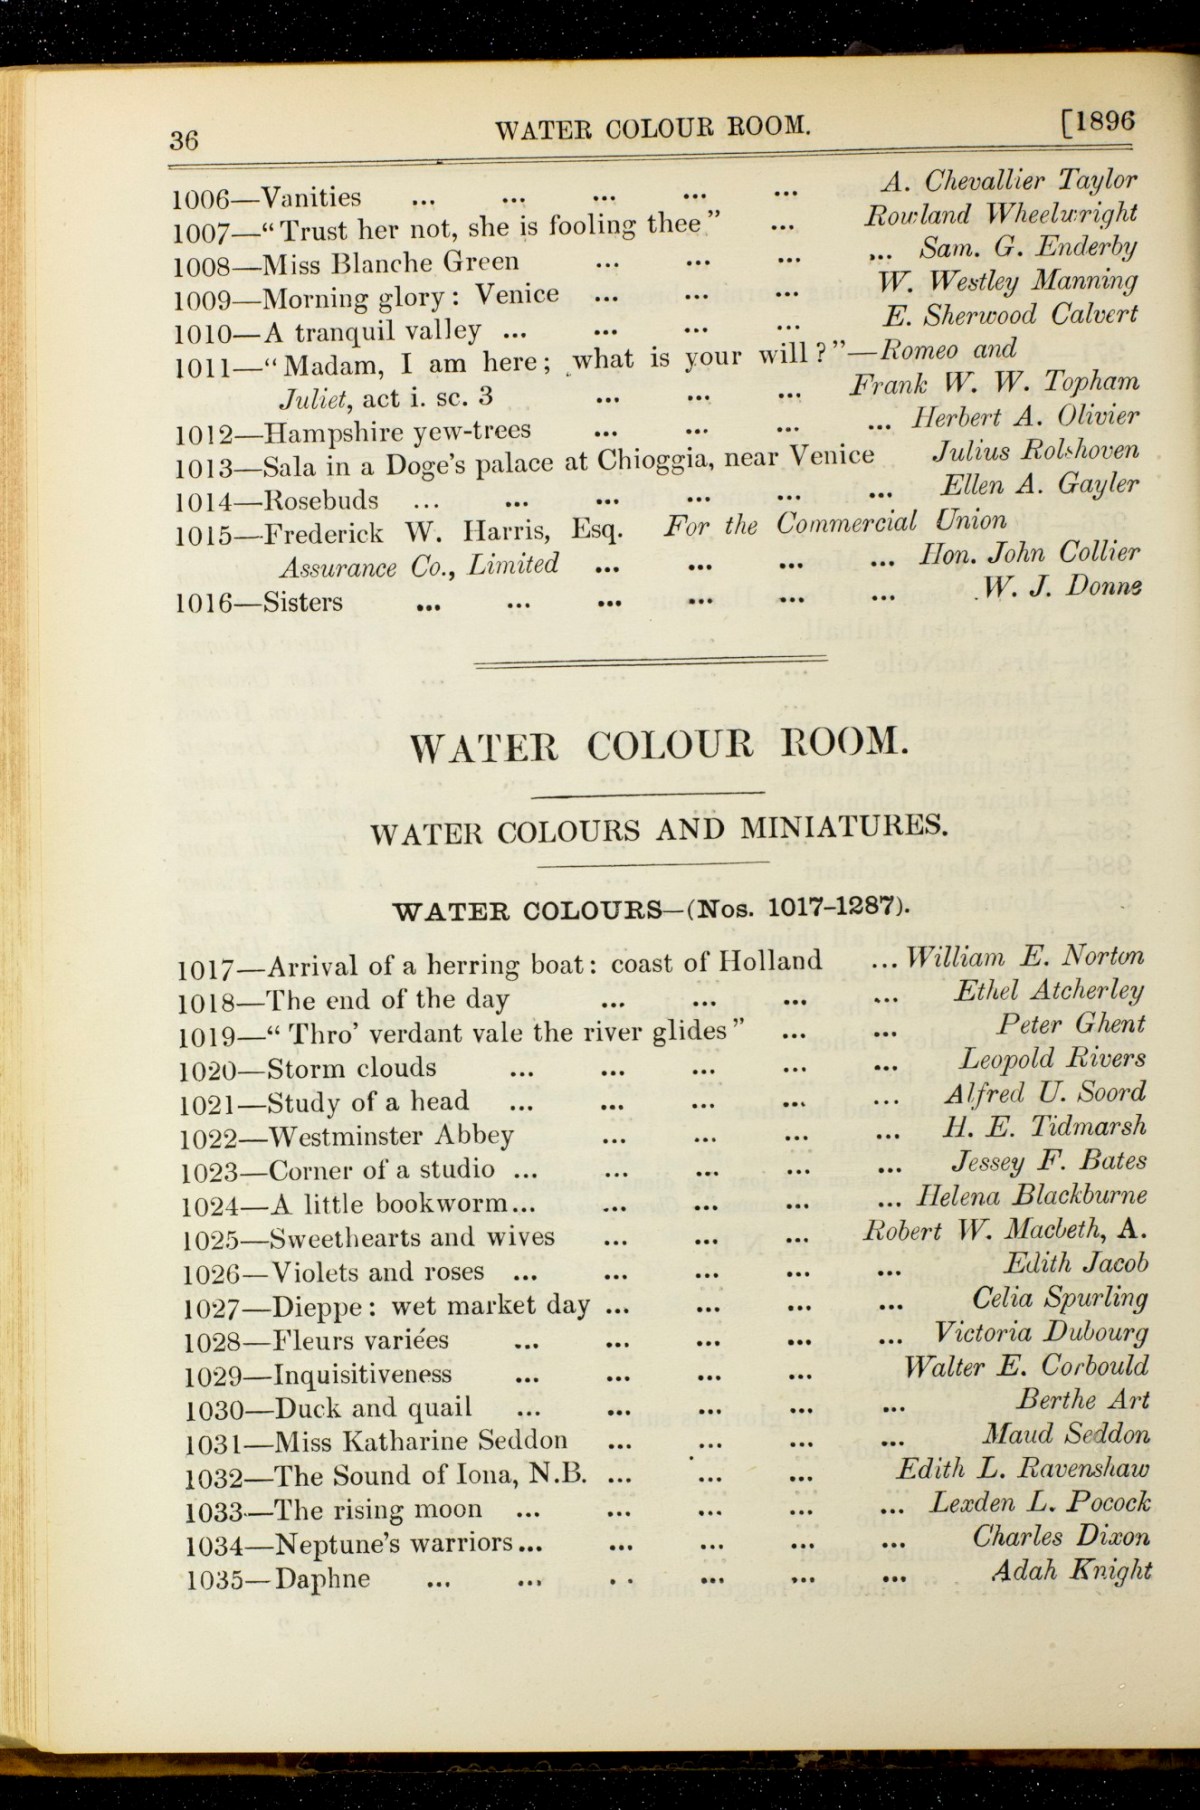 36 WATER COLOUR ROOM. [1896
1006—Vanities ... ... ... ... ... A. Chevallier Taylor
1007—“Trust her not, she is fooling thee” ... Rowland Wheelwright
1008—Miss Blanche Green ... ... ... ... Sam. G. Enderby
1009—Morning glory: Venice ... ... ... W. Westley Manning
1010—A tranquil valley ... ... ... ... E. Sherwood Calvert
1011—“Madam, I am here; what is your will?”—Romeo and
Juliet, act i. sc. 3 ... ... ... Frank W. W. Topham
1012—Hampshire yew-trees ... ... ... ... Herbert A. Olivier
1013—Sala in a Doge's palace at Chioggia, near Venice Julius Rolshoven
1014—Rosebuds ... ... ... ... ... ... Ellen A. Gayler
1015—Frederick W. Harris, Esq. For the Commercial Union
Assurance Co., Limited ... ... ... ... Hon. John Collier
1016—Sisters ... ... ... ... ... ... W. J. Donne
WATER COLOUR ROOM.
WATER COLOURS AND MINIATURES.
WATER COLOURS—(Nos. 1017-1287).
1017—Arrival of a herring boat: coast of Holland ... William E. Norton
1018—The end of the day ... ... ... ... Ethel Atcherley
1019—“Thro' verdant vale the river glides” ... ... Peter Ghent
1020—Storm clouds ... ... ... ... ... Leopold Rivers
1021—Study of a head ... ... ... ... ... Alfred U. Soord
1022—Westminster Abbey ... ... ... ... H. E. Tidmarsh
1023—Corner of a studio ... ... ... ... ... Jessey F. Bates
1024—A little bookworm... ... ... ... ... Helena Blackburne
1025—Sweethearts and wives ... ... ... Robert W. Macbeth, A.
1026—Violets and roses ... ... ... ... ... Edith Jacob
1027—Dieppe: wet market day ... ... ... ... Celia Spurling
1028—Fleurs variées ... ... ... ... ... Victoria Dubourg
1029—Inquisitiveness ... ... ... ... Walter E. Corbould
1030—Duck and quail ... ... ... ... ... Berthe Art
1031—Miss Katharine Seddon ... ... ... ... Maud Seddon
1032—The Sound of Iona, N.B. ... ... ... Edith L. Ravenshaw
1033—The rising moon ... ... ... ... ... Lexden L. Pocock
1034—Neptune's warriors... ... ... ... ... Charles Dixon
1035—Daphne ... ... ... ... ... ... Adah Knight